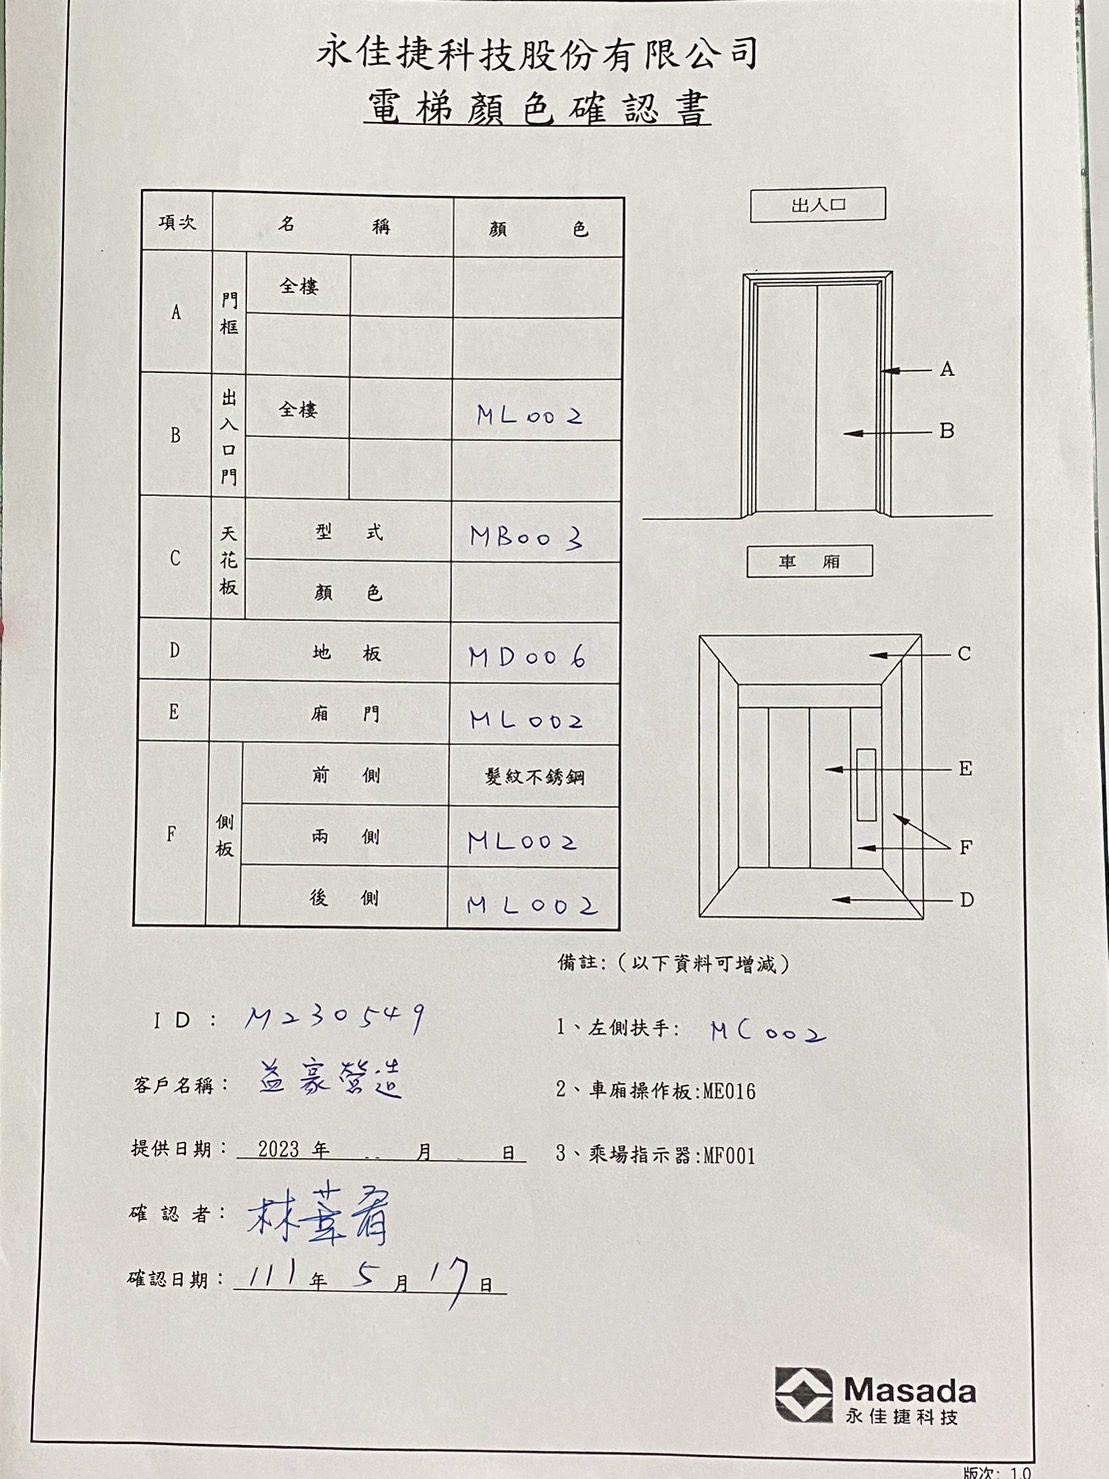 永佳捷科技股份有限公司
電梯顏色確認書
項次 名稱 顏色
A 門框 全樓
B 出入口門 全樓 ML002
C 天花板 型式 MB003
顏色
D 地板 MD006
E 廂門 ML002
F 側板 前側 髮紋不銹鋼
兩側 ML002
後側 ML002
出入口
A
B
車廂
C
E
F
D
備註:(以下資料可增減)
ID: M230549
1、左側扶手: MC002
客戶名稱: 益豪營造
2、車廂操作板:ME016
提供日期: 2023 年 月 日
3、乘場指示器:MF001
確認者: 林
確認日期: 111年 5月 17日
Masada
永佳捷科技
版次: 1.0